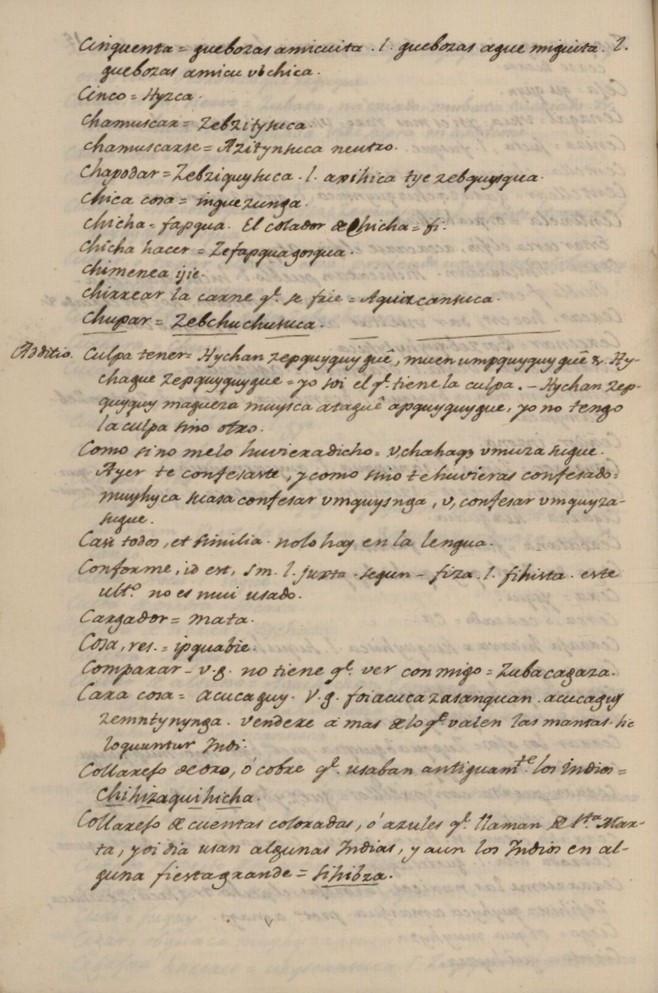 Cinquenta = guebozas amicuita . l. guebozas aque miquita . l.
guebozas amicu vbchica.
Cinco = Hyzca.
Chamuscar = Zebzitysuca.
Chamuscarse = Azitynsuca neutro.
Chapodar = Zebziquysuca . l. axihica tye zebquysqua.
Chica cosa = inguezunga.
Chicha = fapqua. El colador de chicha = fi.
Chicha hacer = Zefapquagosqua.
Chimenea ijie.
Chirrear la carne qͤ. se frie = Aquizcansuca.
Chupar = Zebchuchusuca.
Additio. Culpa tener = Hychan zepquyquy guê, muen umpquyquy guê &. Hy-
chaque zepquyquygue = yo soi el qͤ. tiene la culpa. – Hychan zep-
quyquy magueza muysca ataguê apquyquygue, yo no tengo
la culpa sino otro.
Como si no melo huviera dicho = v, chahaq vmuza sugue.
Ayer te confesaste, y como sino te huvieras confesado =
muyhyca suasa confesar vmquysnga, v, confesar vmquyza-
sugue.
Casi todos, et similia . nolo hay en la lengua.
Conforme, id est, l. juxta . segun – fiza . l. fihista . este
ultº. no es mui usado.
Cargador = mata.
Cosa, res. = ipquabie.
Comparar – v. g. no tiene qͤ. ver con migo = Zubacagaza.
Cara cosa = acucaguy. V. g. foiacuca zasanquan . acucaguy
zemntynynga . vendere a mas de lo qͤ valen las mantas. hic
loquuntur Indi.
Collarejo de oro, ó cobre qͤ. usaban antiguamᵗᵉ. los Indios =
Chihizaquihicha.
Collarejo de cuentas coloradas, ó azules qͤ. llaman de Sᵗᵃ Mar-
ta, y oi dia usan algunas Indias, y aun los Indios en al-
guna fiesta grande = sihibza.